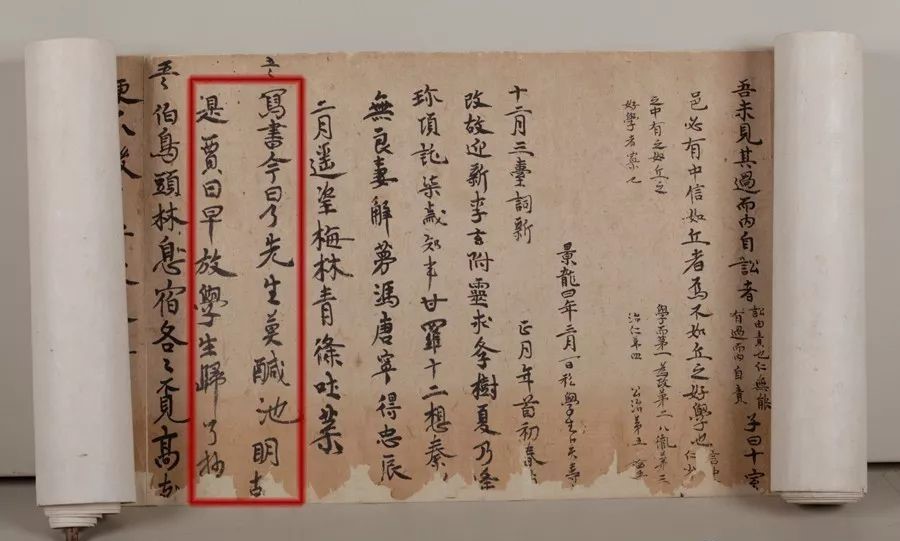 吾未見其過而內自訟者 訟由責也仁無能
有過而內自責 子曰十室
邑必有中信如丘者焉不如丘之好學也 仁少
之中有之如丘之
好學者寡也
學而第一 為政第二 八佾第三
治仁第四 公冶第五
景龍四年三月一日私學生卜天壽
十二月三臺詞新 正月年首初春
改故迎新李玄附靈求學樹夏乃逢
珎項託柒歲知事甘羅十二想秦
無良妻解夢馮唐寧得忠辰
二月遥望梅林青條吐葉
寫書今日了先生莫醎池明古
是賈日早放學生歸
伯鳥頭林息宿各々覓高